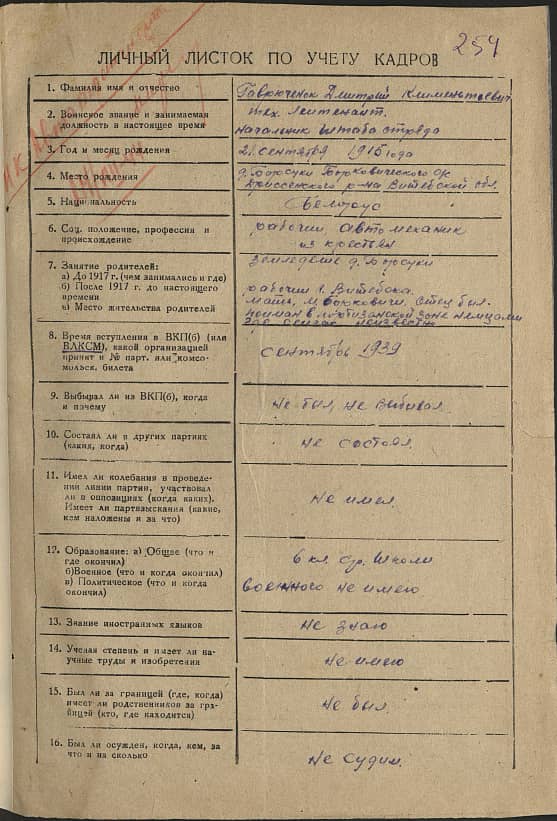 254
ЛИЧНЫЙ ЛИСТОК ПО УЧЕТУ КАДРОВ
1. Фамилия имя и отчество
Гавюченок Дмитрий Климентьевич
2. Воинское звание и занимаемая
должность в настоящее время
тех. лейтенант.
начальник штаба отряда
3. Год и месяц рождения
21 сентября 1915 года
4. Место рождения
д. Борсуки Борковического с/с
Дриссенского р-на Витебской обл.
5. Национальность
белорус
6. Соц. положение, профессия и
происхождение
рабочий, автомеханик
из крестьян
7. Занятие родителей:
а) До 1917 г. (чем занимались и где)
б) После 1917 г. до настоящего
времени
в) Место жительства родителей
земледелие д. Борсуки
рабочий г. Витебска.
мать, м. Борковичи. Отец был
пойман в партизанской зоне немцами
где сейчас неизвестно
8. Время вступления в ВКП(б) (или
ВЛКСМ), какой организацией
принят и № парт. или комсо-
мольск. билета
сентябрь 1939
9. Выбывал ли из ВКП(б), когда
и почему
Не был, не выбывал.
10. Состоял ли в других партиях
(каких, когда)
не состоял.
11. Имел ли колебания в проведе-
нии линии партии, участвовал
ли в оппозициях (когда каких).
Имеет ли партвзыскания (какие,
кем наложены и за что)
Не имел.
12. Образование: а) Общее (что и
где окончил)
б)Военное (что и когда окончил)
в) Политическое (что и когда
окончил)
6 кл. ср. школы
военного не имею
13. Знание иностранных языков
не знаю
14. Ученая степень и имеет ли на-
учные труды и изобретения
не имею
15. Был ли за границей (где, когда)
имеет ли родственников за гра-
ницей (кто, где находится)
не был.
16. Был ли осужден, когда, кем, за
что и на сколько
не судим.